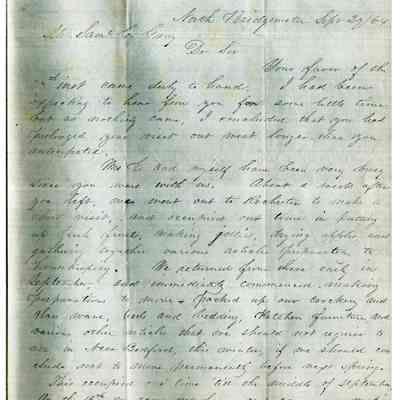 North Bridgewater Sep. 29/64
Mr. Saml
Dr Sir
Your favor of the
inst came duly to hand. I had been
expecting to hear from you for some little time
but as nothing came, I concluded that you had
prolonged your visit out west longer than you
anticipated.
Mrs C and myself have been very busy
since you were with us. About a week after
you left, we went out to Rochester to make a
short visit, and occupied our time in putting
up fresh fruits, making jellies, drying apples and
gathering together various articles preparatory to
housekeeping. We returned from there early in
September and immediately commenced making
preparations to move - packed up our crockery and
glass ware, beds and bedding, kitchen furniture and
various other articles that we should not require to
use in New Bedford, this winter, if we should con
clude not to move permanently before next spring.
This occupied our time till the middle of September